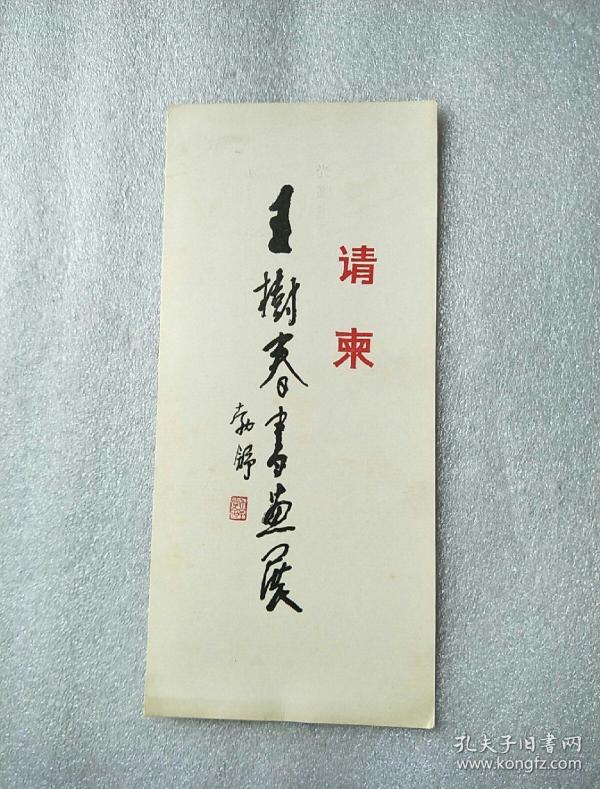 请柬
王樹春書画展
勃舒
孔夫子旧书网
www.kongfz.com